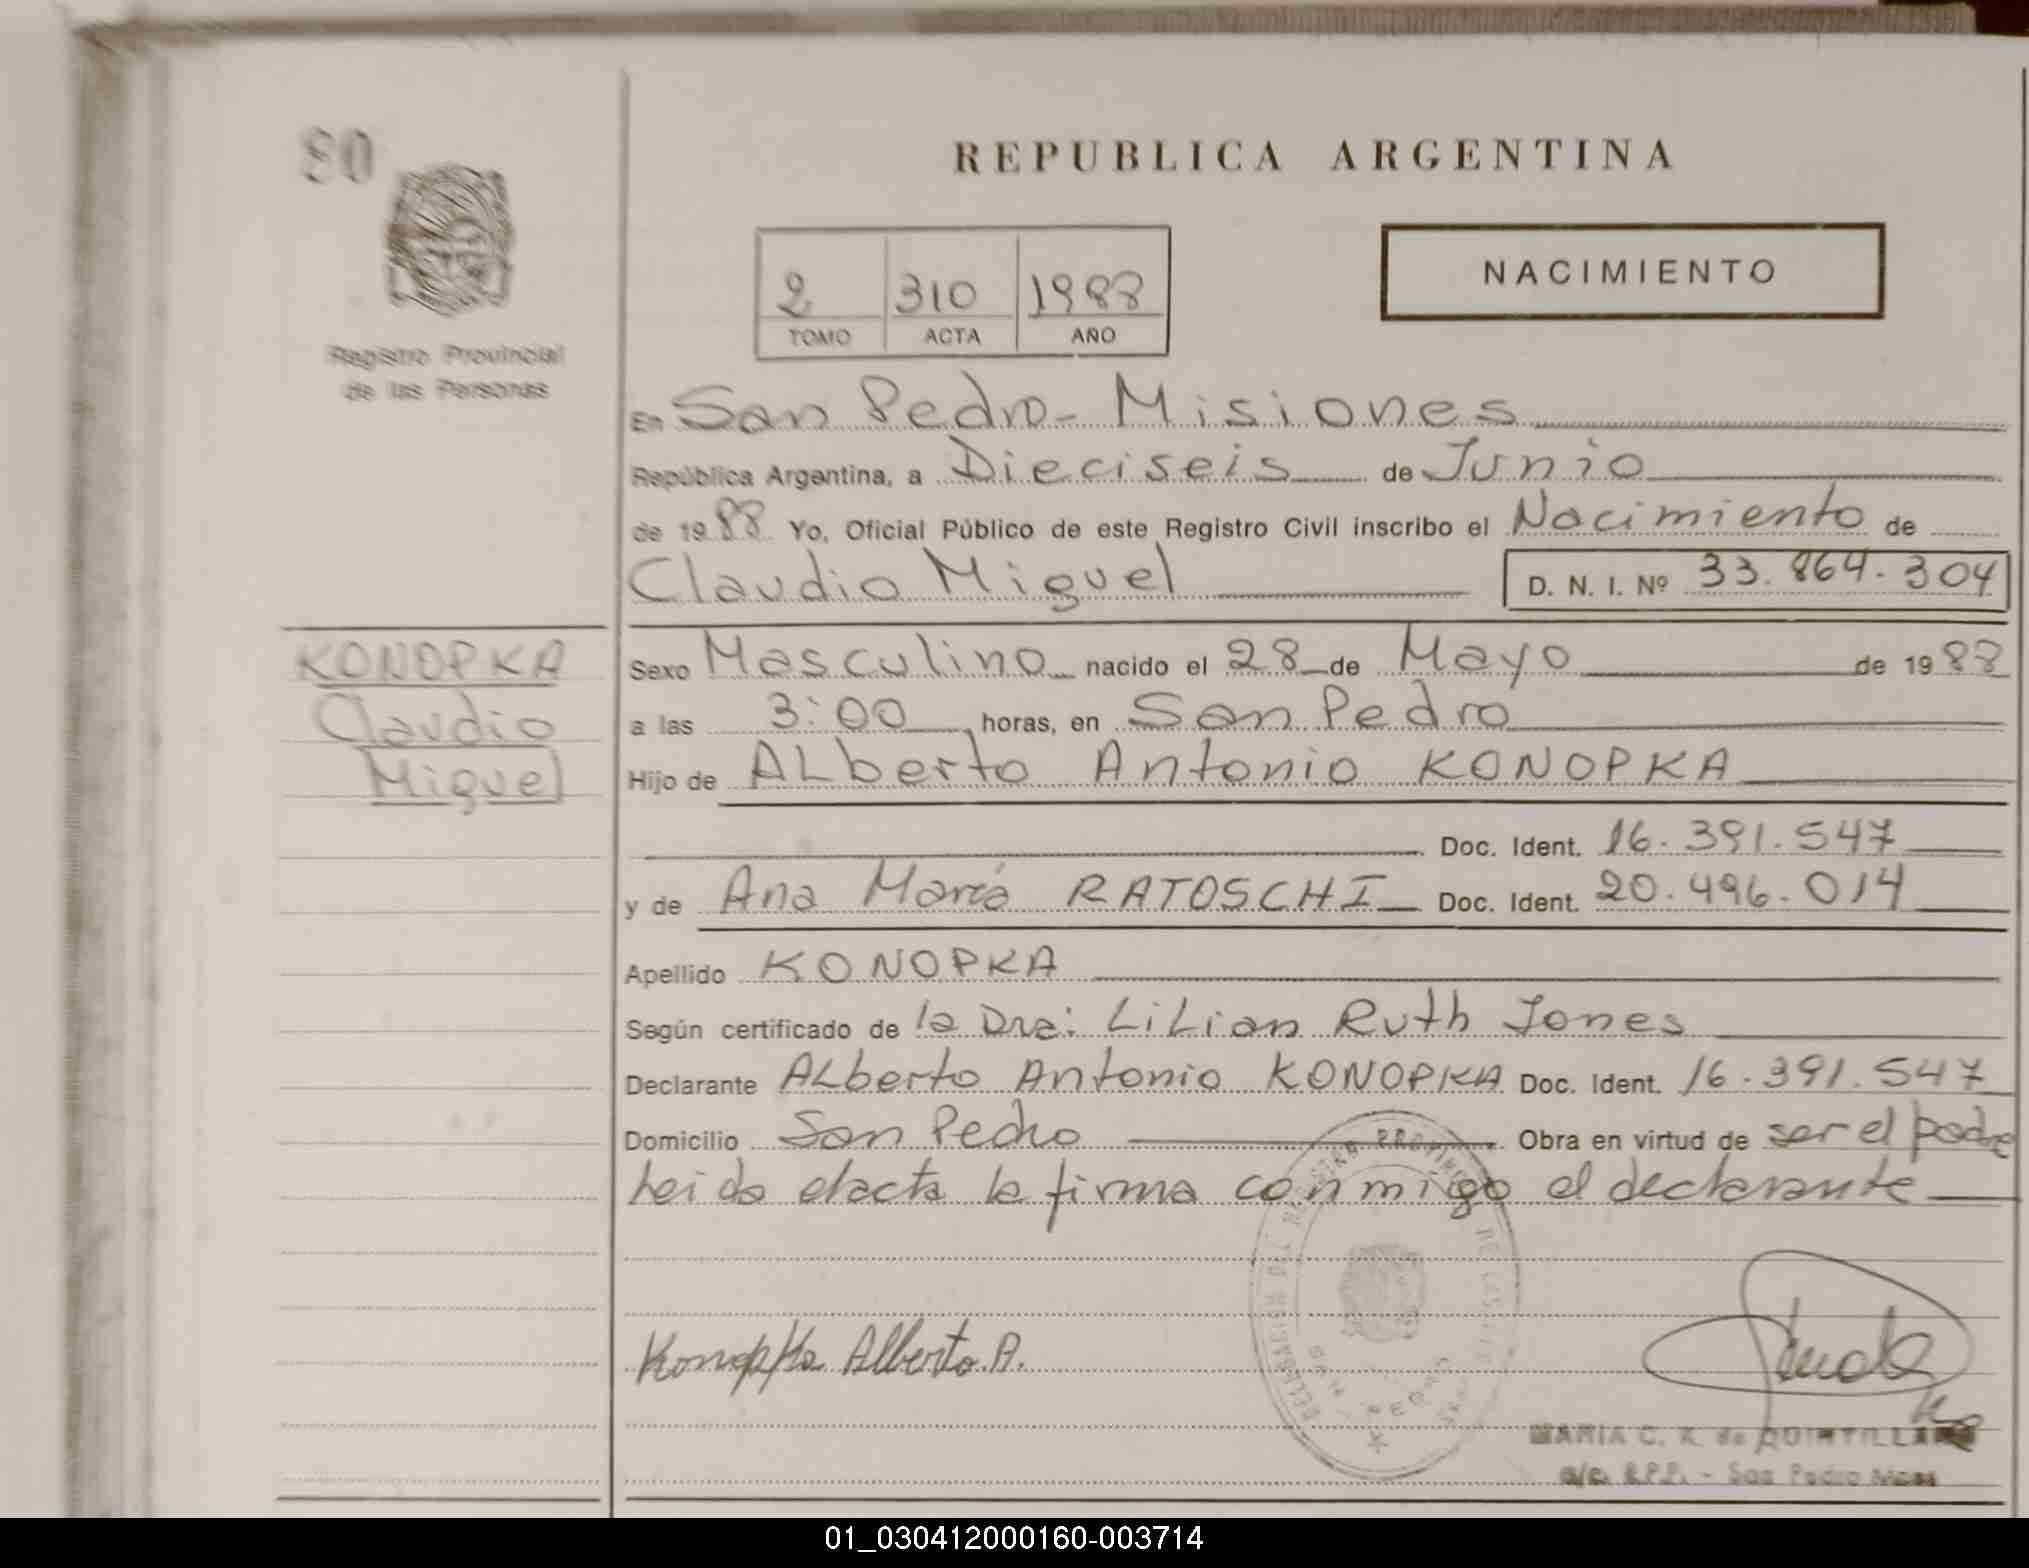 03
Registro Provincial
de las Personas
REPUBLICA ARGENTINA
NACIMIENTO
2 310 1988
TOMO ACTA AÑO
En San Pedro - Misiones
República Argentina, a Dieciseis de Junio
de 1988 Yo, Oficial Público de este Registro Civil inscribo el Nacimiento de
Claudio Miguel D. N. I. Nº 33.864.304
KONOPKA
Claudio
Miguel
Sexo Masculino nacido el 28 de Mayo de 1988
a las 3:00 horas, en San Pedro
Hijo de ALberto Antonio KONOPKA
Doc. Ident. 16.391.547
y de Ana María RATOSCHI Doc. Ident. 20.496.014
Apellido KONOPKA
Según certificado de la Dra: LiLian Ruth Jones
Declarante ALberto Antonio KONOPKA Doc. Ident. 16.391.547
Domicilio San Pedro Obra en virtud de ser el padre
Leida el acta la firma conmigo el declarante
Konopka Alberto A.
DELEGACION DEL REGISTRO PROVINCIAL DE LAS
SAN PEDRO
MARIA C. K. de QUINTILLAN
a/c. R.P.P. - San Pedro Mnes
01_030412000160-003714